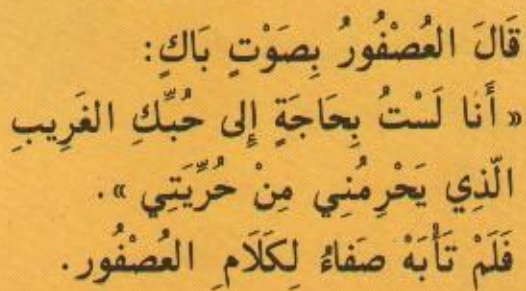 قَالَ العُصْفُورُ بِصَوْتٍ بَاكٍ:
« أَنَا لَسْتُ بِحَاجَةٍ إِلى حُبِّكِ الغَرِيبِ
الَّذِي يَحْرِمُنِي مِنْ حُرِّيَّتِي ».
فَلَمْ تَأْبَهْ صَفاءُ لِكَلَامِ العُصْفُور.